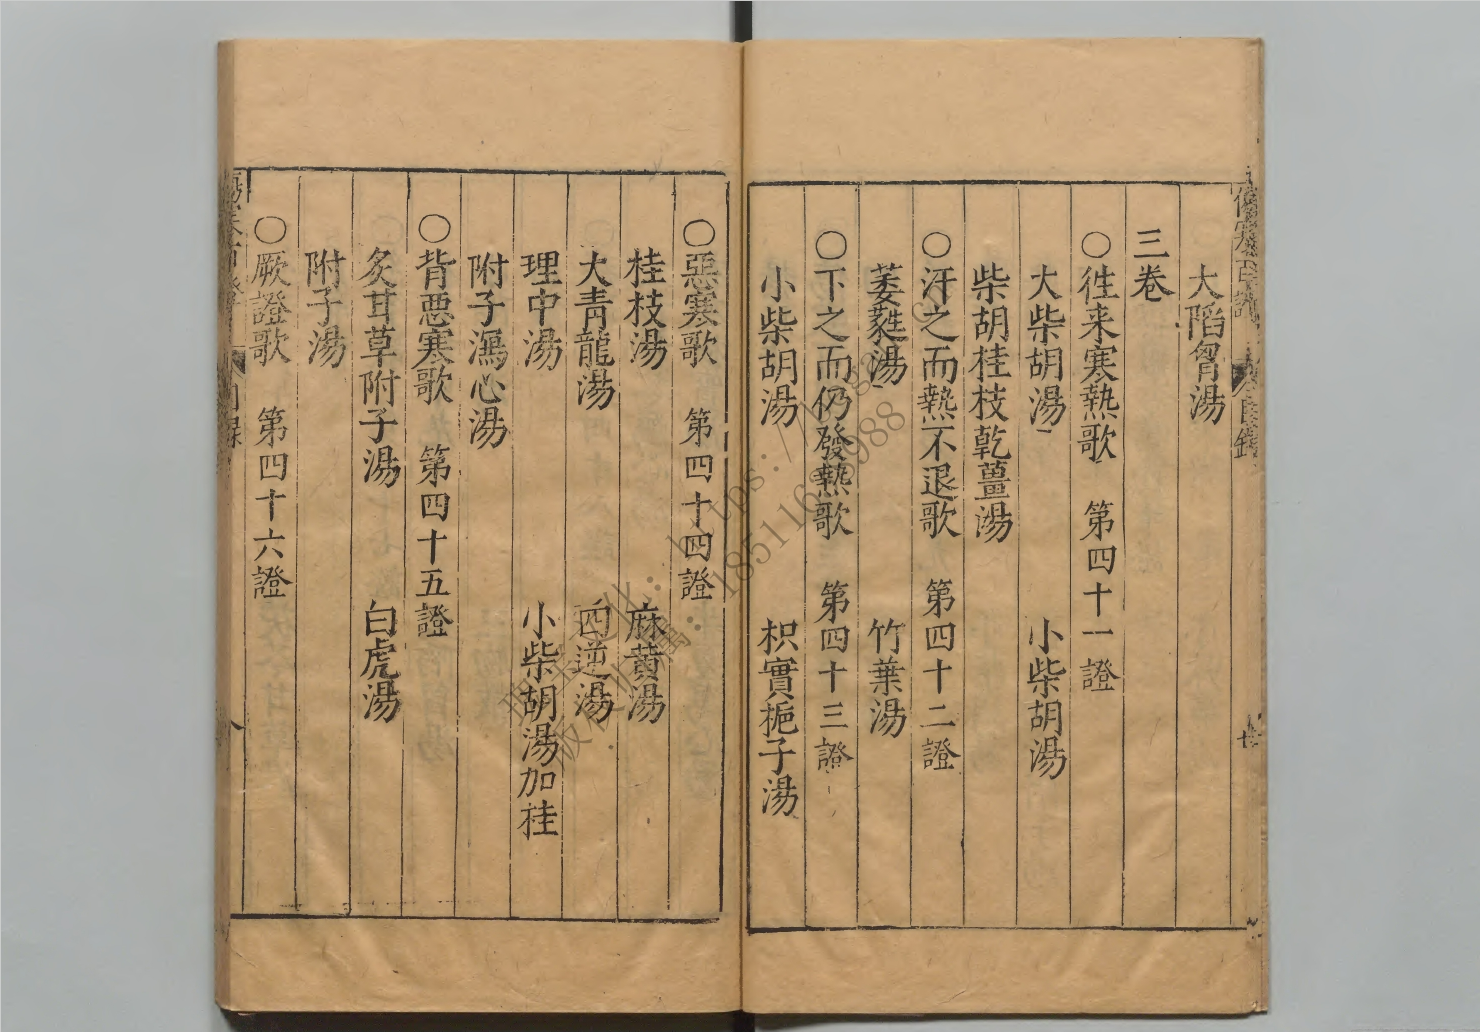 大陷胷湯
三卷
○徃来寒熱歌 第四十一證
大柴胡湯 小柴胡湯
柴胡桂枝乾薑湯
○汗之而熱不退歌 第四十二證
萎蕤湯 竹葉湯
○下之而仍發熱歌 第四十三證
小柴胡湯 枳實梔子湯
○惡寒歌 第四十四證
桂枝湯 麻黄湯
大青龍湯 四逆湯
理中湯 小柴胡湯加桂
附子瀉心湯
○背惡寒歌 第四十五證
炙甘草附子湯 白虎湯
附子湯
○厥證歌 第四十六證